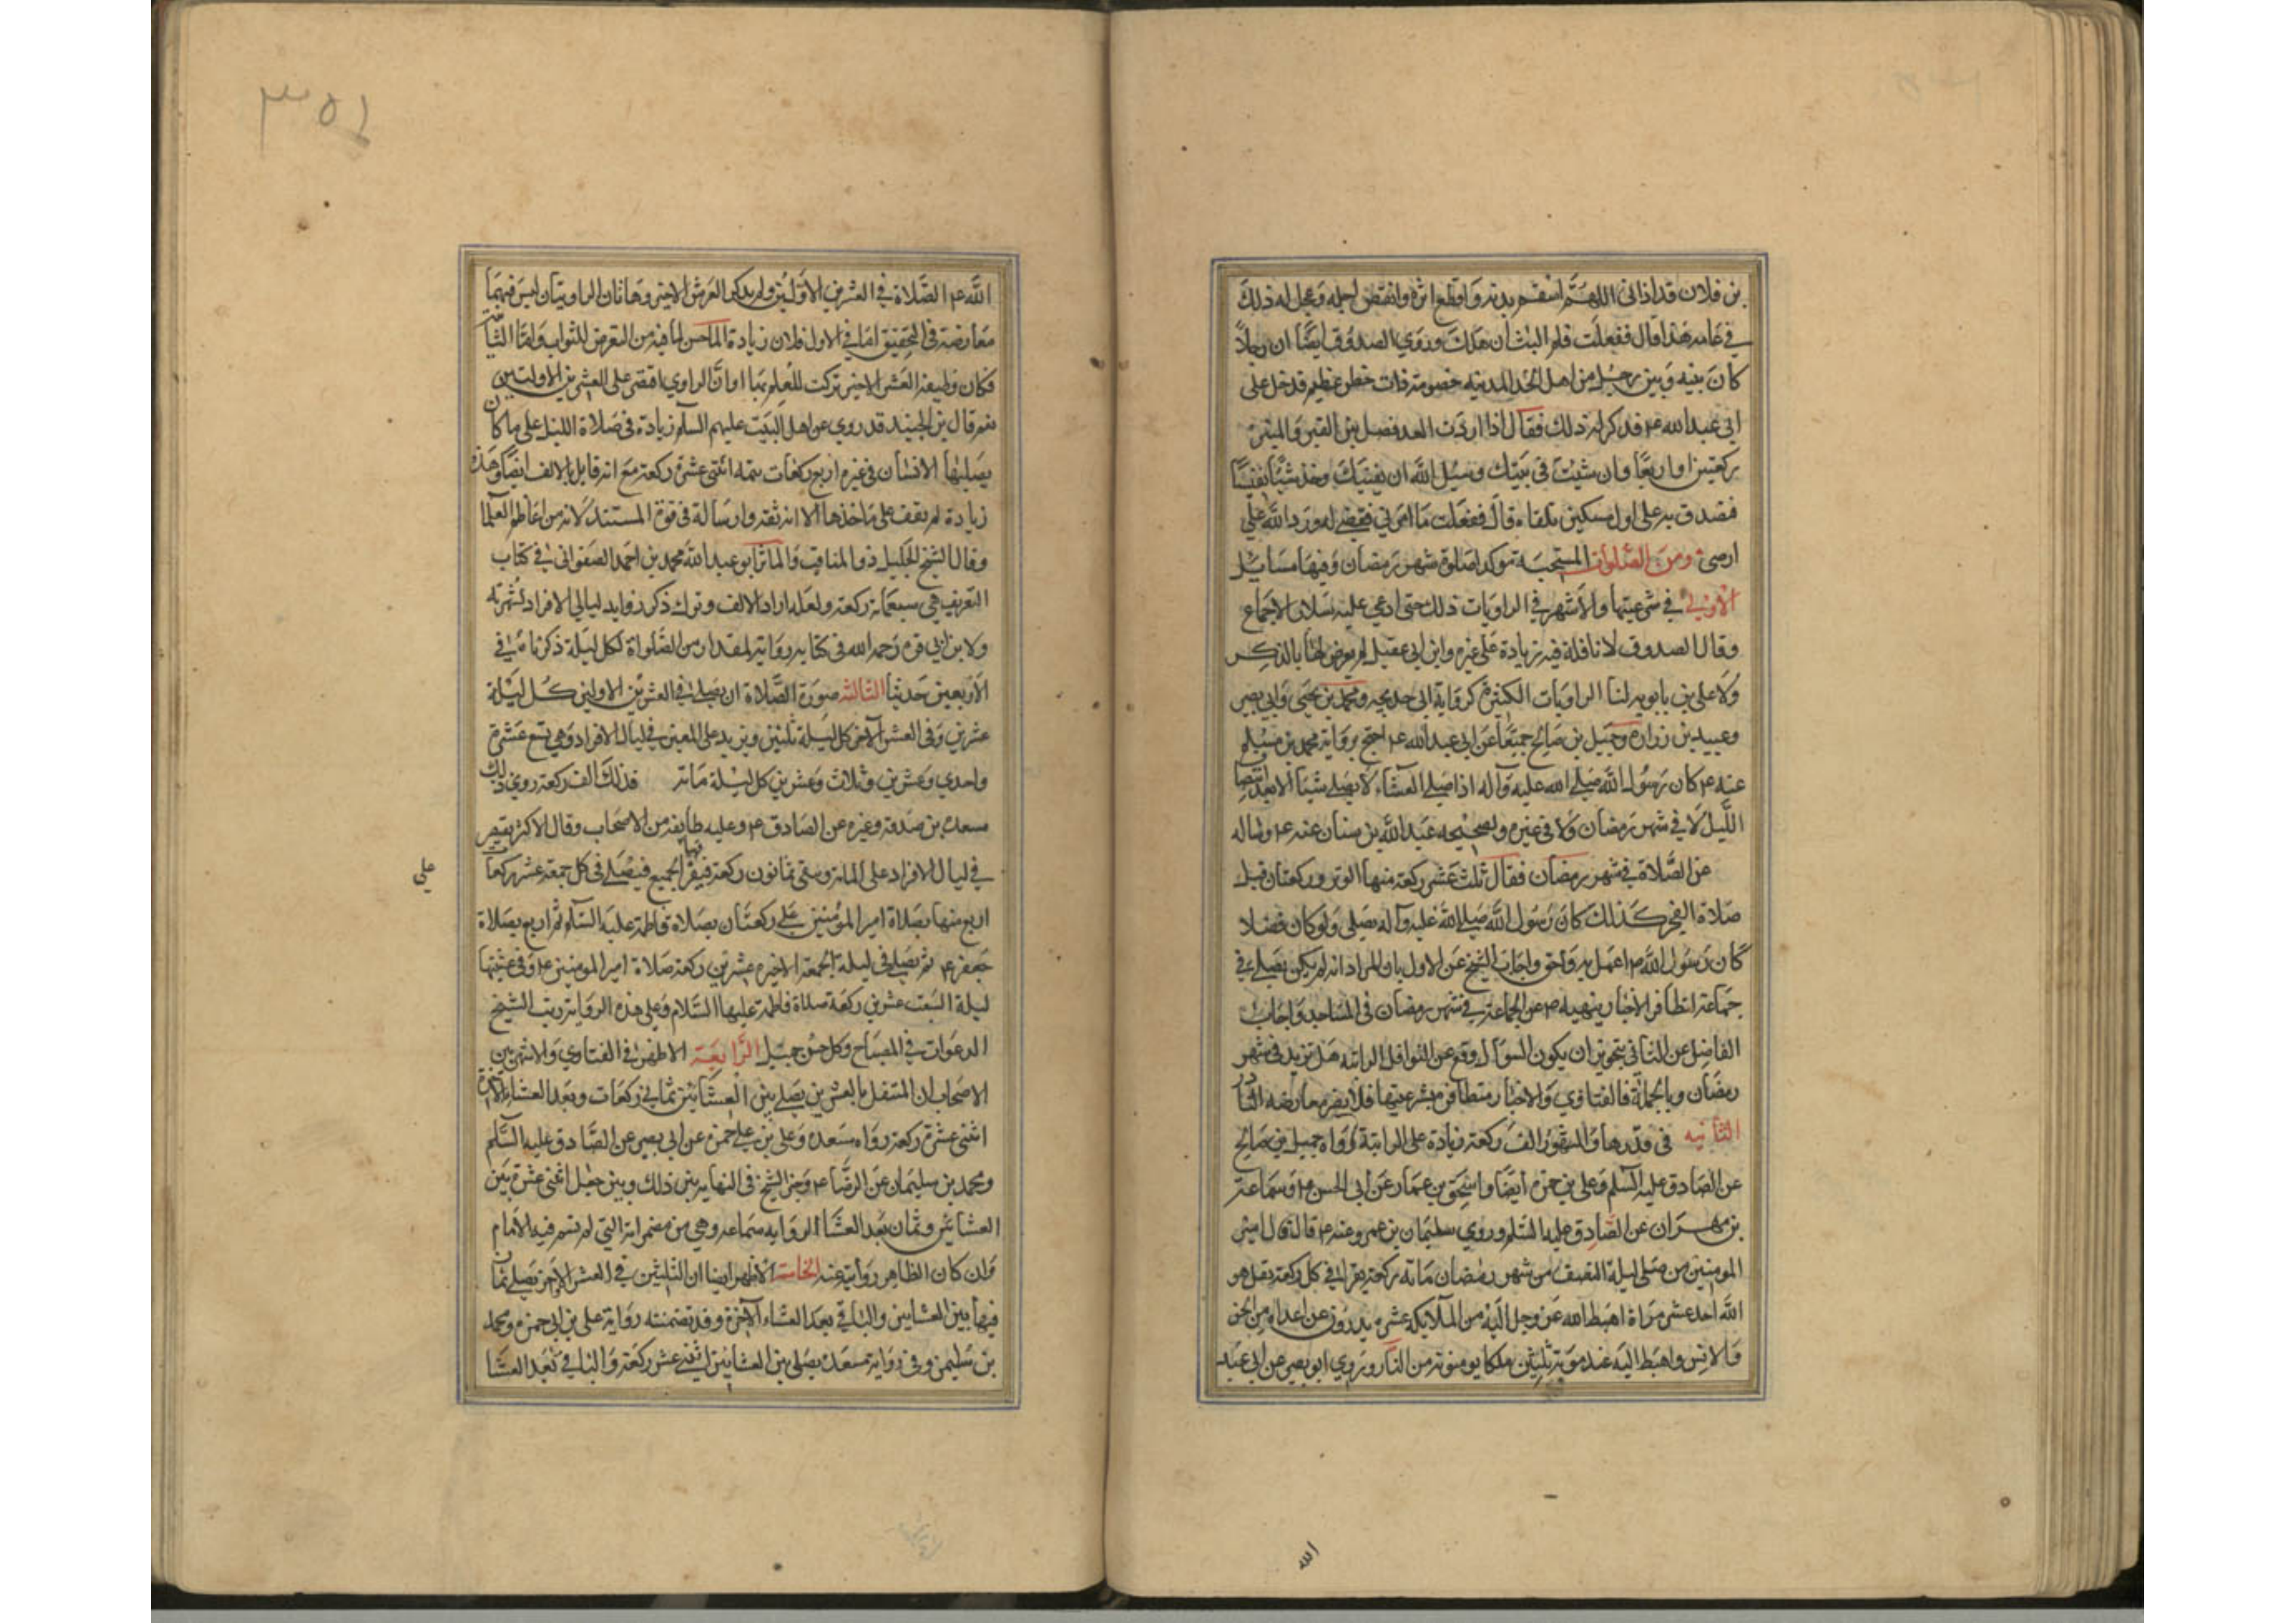 بن فلان قد اذانى اللهم اسقم بدنه واقطع اثره وانقص اجله وعجل له ذلك
في عامه هذا قال ففعلت فلم البث ان هلك وروي الصدوق ايضا ان رجلاً
كان بينه وبين رجل من اهل المدينه خصومة ذات خطر عظيم فدخل على
ابى عبدالله ع فذكر له ذلك فقال اذا اردت العد فصل بين القبر والمنبر
ركعتين او اربعا وان شئت في بيتك وسل الله ان يعينك وخذ شيئا نفيسا
فتصدق به على اول مسكين تلقاه قال ففعلت ما امرني فقضى لي ورد الله علي
ارضى ومن الصلوات المستحبة موكدا صلوة شهر رمضان وفيها مسايل
الاولى في شرعيتها والاشهر في الروايات ذلك حتى ادعي عليه سلار الاجماع
وقال الصدوق لا نافلة فيه زيادة على غيره وابن ابى عقيل لم يعرض لها بالذكر
ولا على بن بابويه لنا الراويات الكثيرة كرواية ابى خديجه ومحمد بن يحيى وابى بصير
وعبيد بن زرارة وجميل بن صالح جميعا عن ابى عبدالله ع احتج برواية محمد بن مسلم
عنه ع كان رسول الله صلى الله عليه وآله اذا صلى العشاء لا يصلى شيئا الا بعد انتصا
الليل لا في شهر رمضان ولا في غيره ولصحيحه عبدالله بن سنان عنه ع وساله
عن الصلاة في شهر رمضان فقال ثلث عشر ركعة منها الوتر وركعتان قبل
صلاة الفجر كذلك كان رسول الله صلى الله عليه وآله يصلى ولو كان فضلا
كان رسول الله ص اعمل به واحق واجاب الشيخ عن الاول بان المراد انه لم يكن يصلى في
جماعة لتظافر الاخبار بنهيه ص عن الجماعة في شهر رمضان في المساجد واجاب
الفاضل عن الثاني بتجويز ان يكون السؤال وقع عن النوافل الراتبه هل تزيد في شهر
رمضان وبالجملة فالفتاوي والاخبار متظافرة بشرعيتها فلا يضر معارضه النادر
الثانيه في قدرها والمشهور الف ركعة زيادة على الراتبة رواه جميل بن صالح
عن الصادق عليه السلم وعلى بن حمزة ايضا واسحق بن عمار عن أبى الحسن ع وسماعة
بن مهران عن الصادق عليه السلم وروي سليمان بن عمرو عنه ع قال قال امير
المومنين من صلى ليلة النصف من شهر رمضان مائة ركعة يقرا في كل ركعة بقل هو
الله احد عشر مراة اهبط الله عز وجل اليه من الملايكه عشرة يدرؤن عن اعداه من الجن
والانس واهبط اليه عند موته ثلثين ملكا يومنونه من النار وروي ابو بصير عن ابى عبد
الله
٣٥٤
الله ع الصلاة في العشرين الاولتين ولم يذكر العرش الاخير وهاتان الراويتان ليس فيهما
معارضة في التحقيق اما في الاول فلان زيادة المأحسن لما فيه من التعرض للثواب واما الثانية
فكان وظيفة العشر الاخير تركت للعلم بها او ان الراوي اقتصر على العشرين الاولتين
نعم قال بن الجنيد قد روي عن اهل البيت عليهم السلم زيادة في صلاة الليل على ما كان
يصليها الانسان في غيره اربع ركعات تتمه اثنتى عشرة ركعة مع انه قايل بالالف ايضا وهذه
زيادة لم نقف على ماخذها الا انه ثقة وارساله في قوة المستند لانه من اعاظم العلما
وقال الشيخ الجليل ذو المناقب والماثر ابو عبدالله محمد بن احمد الصفوانى في كتاب
التعريف هي سبعمائة ركعة ولعله اراد الالف وترك ذكر زوايد ليالي الافراد لشهرته
ولابن ابي قره رحمه الله في كتابه رواية لمقدار من الصلواة لكل ليلة ذكرناه في
الاربعين حديثا الثالثة صورة الصلاة ان يصلى في العشرين الاولين كل ليلة
عشرين وفى العشر الآخر كل ليلة ثلثين ويزيد على المعين في ليال الافراد وهي تسع عشرة
واحدي وعشرين وثلاث وعشرين كل ليلة مائة فذلك الف ركعة روي ذلك
مسعدة بن صدقة وغيره عن الصادق ع وعليه طايفه من الاصحاب وقال الاكثر يقتصر
في ليال الافراد على المائة وتبقى ثمانون ركعة فيفرق الجميع فيصلى في كل جمعة عشر ركعات
فيها
على
اربع منها بصلاة امير المؤمنين على ركعتان بصلاة فاطمة عليه السلم ثم اربع بصلاة
جعفر ع ثم يصلى في ليلة الجمعة الاخيره عشرين ركعة صلاة امير المومنين ع وفى عشيتها
ليلة السبت عشرين ركعة صلاة فاطمة عليها السلام وعلى هذه الرواية رتب الشيخ
الدعوات في المصباح وكل حسن جميل الرابعة الاظهر في الفتاوي والاشهر بين
الاصحاب ان المتنفل بالعشرين يصلى بين العشائين ثماني ركعات وبعد العشاء الآخرة
اثنتى عشرة ركعة رواه مسعدة وعلى بن على حمزه عن ابى بصير عن الصادق عليه السلم
ومحمد بن سليمان عن الرضا ع وخير الشيخ في النهايه بين ذلك وبين جعل اثنى عشرة بين
العشائين وثمان بعد العشا لروايه سماعه وهي من مضمراته التي لم يسم فيه الامام
وان كان الظاهر روايته عنه الخامسة الاظهر ايضا ان الثلثين في العشر الاخر يصلى ثمان
فيها بين العشايين والباقى بعد العشاء الآخرة وقد تضمنته رواية على بن ابى حمزه ومحمد
بن سليمن وفى رواية مسعدة يصلى بين العشائين اثنتى عشر ركعة والباقى بعد العشا